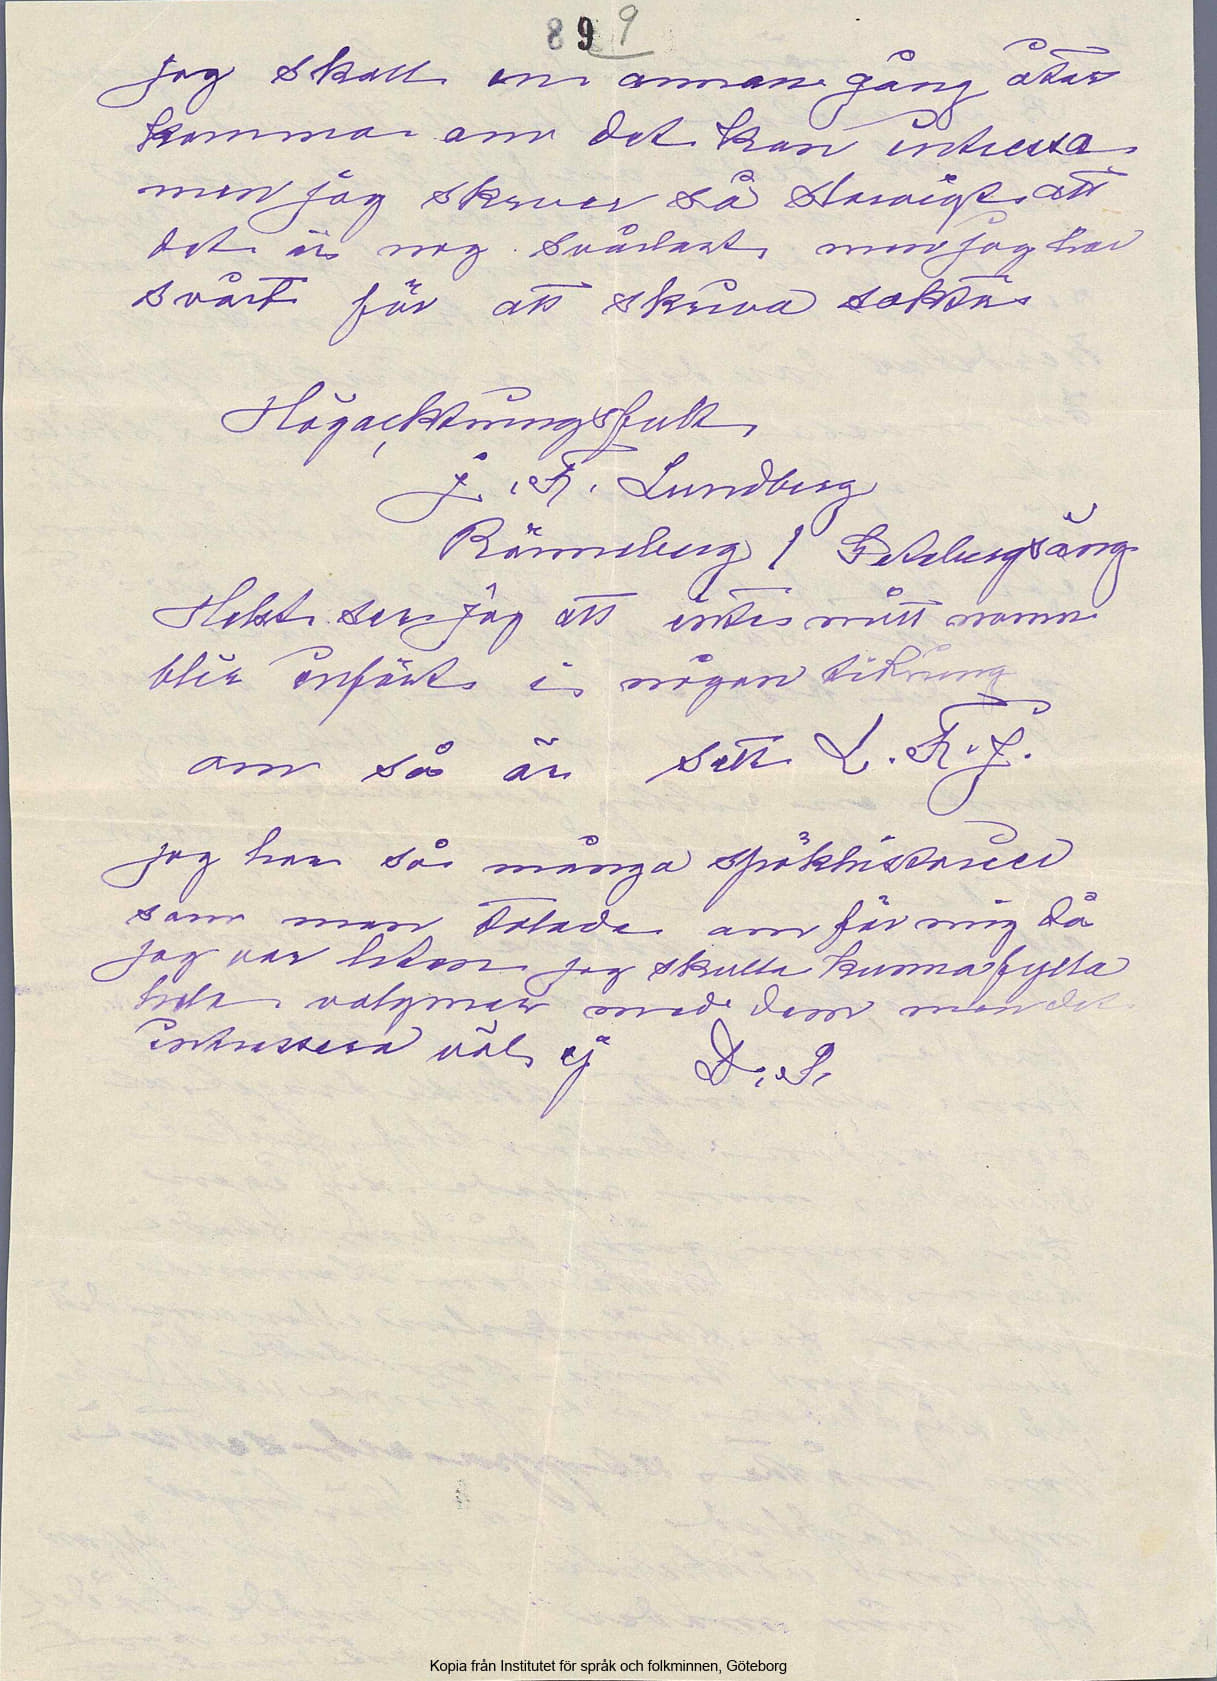 899
jag skall en annan gång åter
komma om det kan intresa
men jag skrver så slarvigt att
det är nog svårläst men jag har
svårt för att skriva sakta
Högacktningsfullt
J. F. Lundberg
Ränneberg / Götebergsäng
Helst ser jag att inte mitt namn
blir infört i någon tidning
om så är sätt L. F. J.
jag har så många spökhistorier
som man talade om för mig då
jag var liten jag skulle kunna fylla
hela volymer med dem men det
intressera väl ej D. S.
Kopia från Institutet för språk och folkminnen, Göteborg